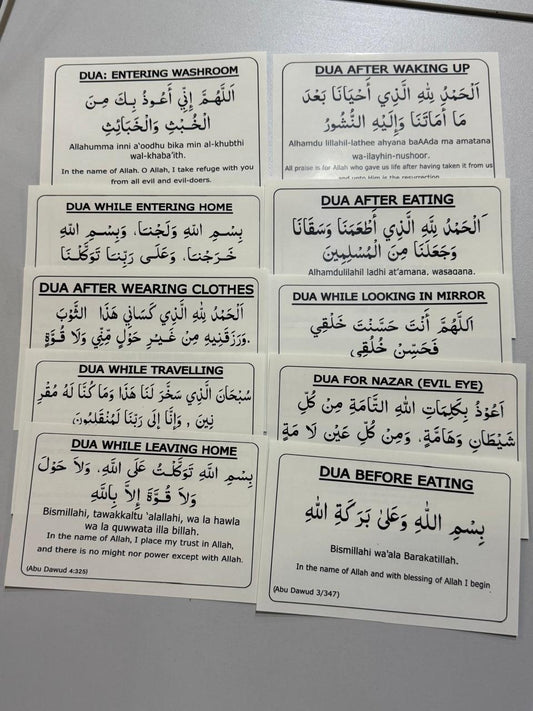 DUA: ENTERING WASHROOM
اَللَّهُمَّ إِنِّي أَعُوذُ بِكَ مِنَ
الْخُبْثِ وَالْخَبَائِثِ
Allahumma inni a'oodhu bika min al-khubthi
wal-khaba'ith.
In the name of Allah. O Allah, I take refuge with you
from all evil and evil-doers.
DUA WHILE ENTERING HOME
بِسْمِ اللهِ وَلَجْنَا، وَبِسْمِ اللهِ
خَرَجْنَا، وَعَلَى رَبِّنَا تَوَكَّلْنَا
DUA AFTER WEARING CLOTHES
اَلْحَمْدُ لِلَّهِ الَّذِي كَسَانِي هَذَا الثَّوْبَ
وَرَزَقَنِيهِ مِنْ غَيْرِ حَوْلٍ مِّنِّي وَلَا قُوَّةٍ.
DUA WHILE TRAVELLING
سُبْحَانَ الَّذِي سَخَّرَ لَنَا هَذَا وَمَا كُنَّا لَهُ مُقْرِ
نِينَ , وَإِنَّا إِلَى رَبِّنَا لَمُنْقَلِبُونَ
DUA WHILE LEAVING HOME
بِسْمِ اللَّهِ تَوَكَّلْتُ عَلَى اللَّهِ، وَلاَ حَوْلَ
وَلاَ قُوَّةَ إِلاَّ بِاللَّهِ
Bismillahi, tawakkaltu 'alallahi, wa la hawla
wa la quwwata illa billah.
In the name of Allah, I place my trust in Allah,
and there is no might nor power except with Allah.
(Abu Dawud 4:325)
DUA AFTER WAKING UP
اَلْحَمْدُ لِلهِ الَّذِي أَحْيَانَا بَعْدَ
مَا أَمَاتَنَا وَإِلَيْهِ النُّشُورُ
Alhamdu lillahil-lathee ahyana baAAda ma amatana
wa-ilayhin-nushoor.
All praise is for Allah who gave us life after having taken it from us
and unto Him is the resurrection
DUA AFTER EATING
اَلْحَمْدُ لِلَّهِ الَّذِي أَطْعَمَنَا وَسَقَانَا
وَجَعَلَنَا مِنَ الْمُسْلِمِينَ
Alhamdulilahil ladhi at'amana, wasaqana,
DUA WHILE LOOKING IN MIRROR
اَللَّهُمَّ أَنْتَ حَسَّنْتَ خَلْقِي
فَحَسِّنْ خُلُقِي
DUA FOR NAZAR (EVIL EYE)
اَعُوْذُ بِكَلِمَاتِ اللهِ التَّامَةِ مِنْ كُلِّ
شَيْطَانٍ وَهَامَّةٍ، وَمِنْ كُلِّ عَيْنٍ لَا مَةٍ
DUA BEFORE EATING
بِسْمِ اللهِ وَعَلىٰ بَرَكَةِ اللهِ
Bismillahi wa'ala Barakatillah.
In the name of Allah and with blessing of Allah I begin
(Abu Dawud 3/347)